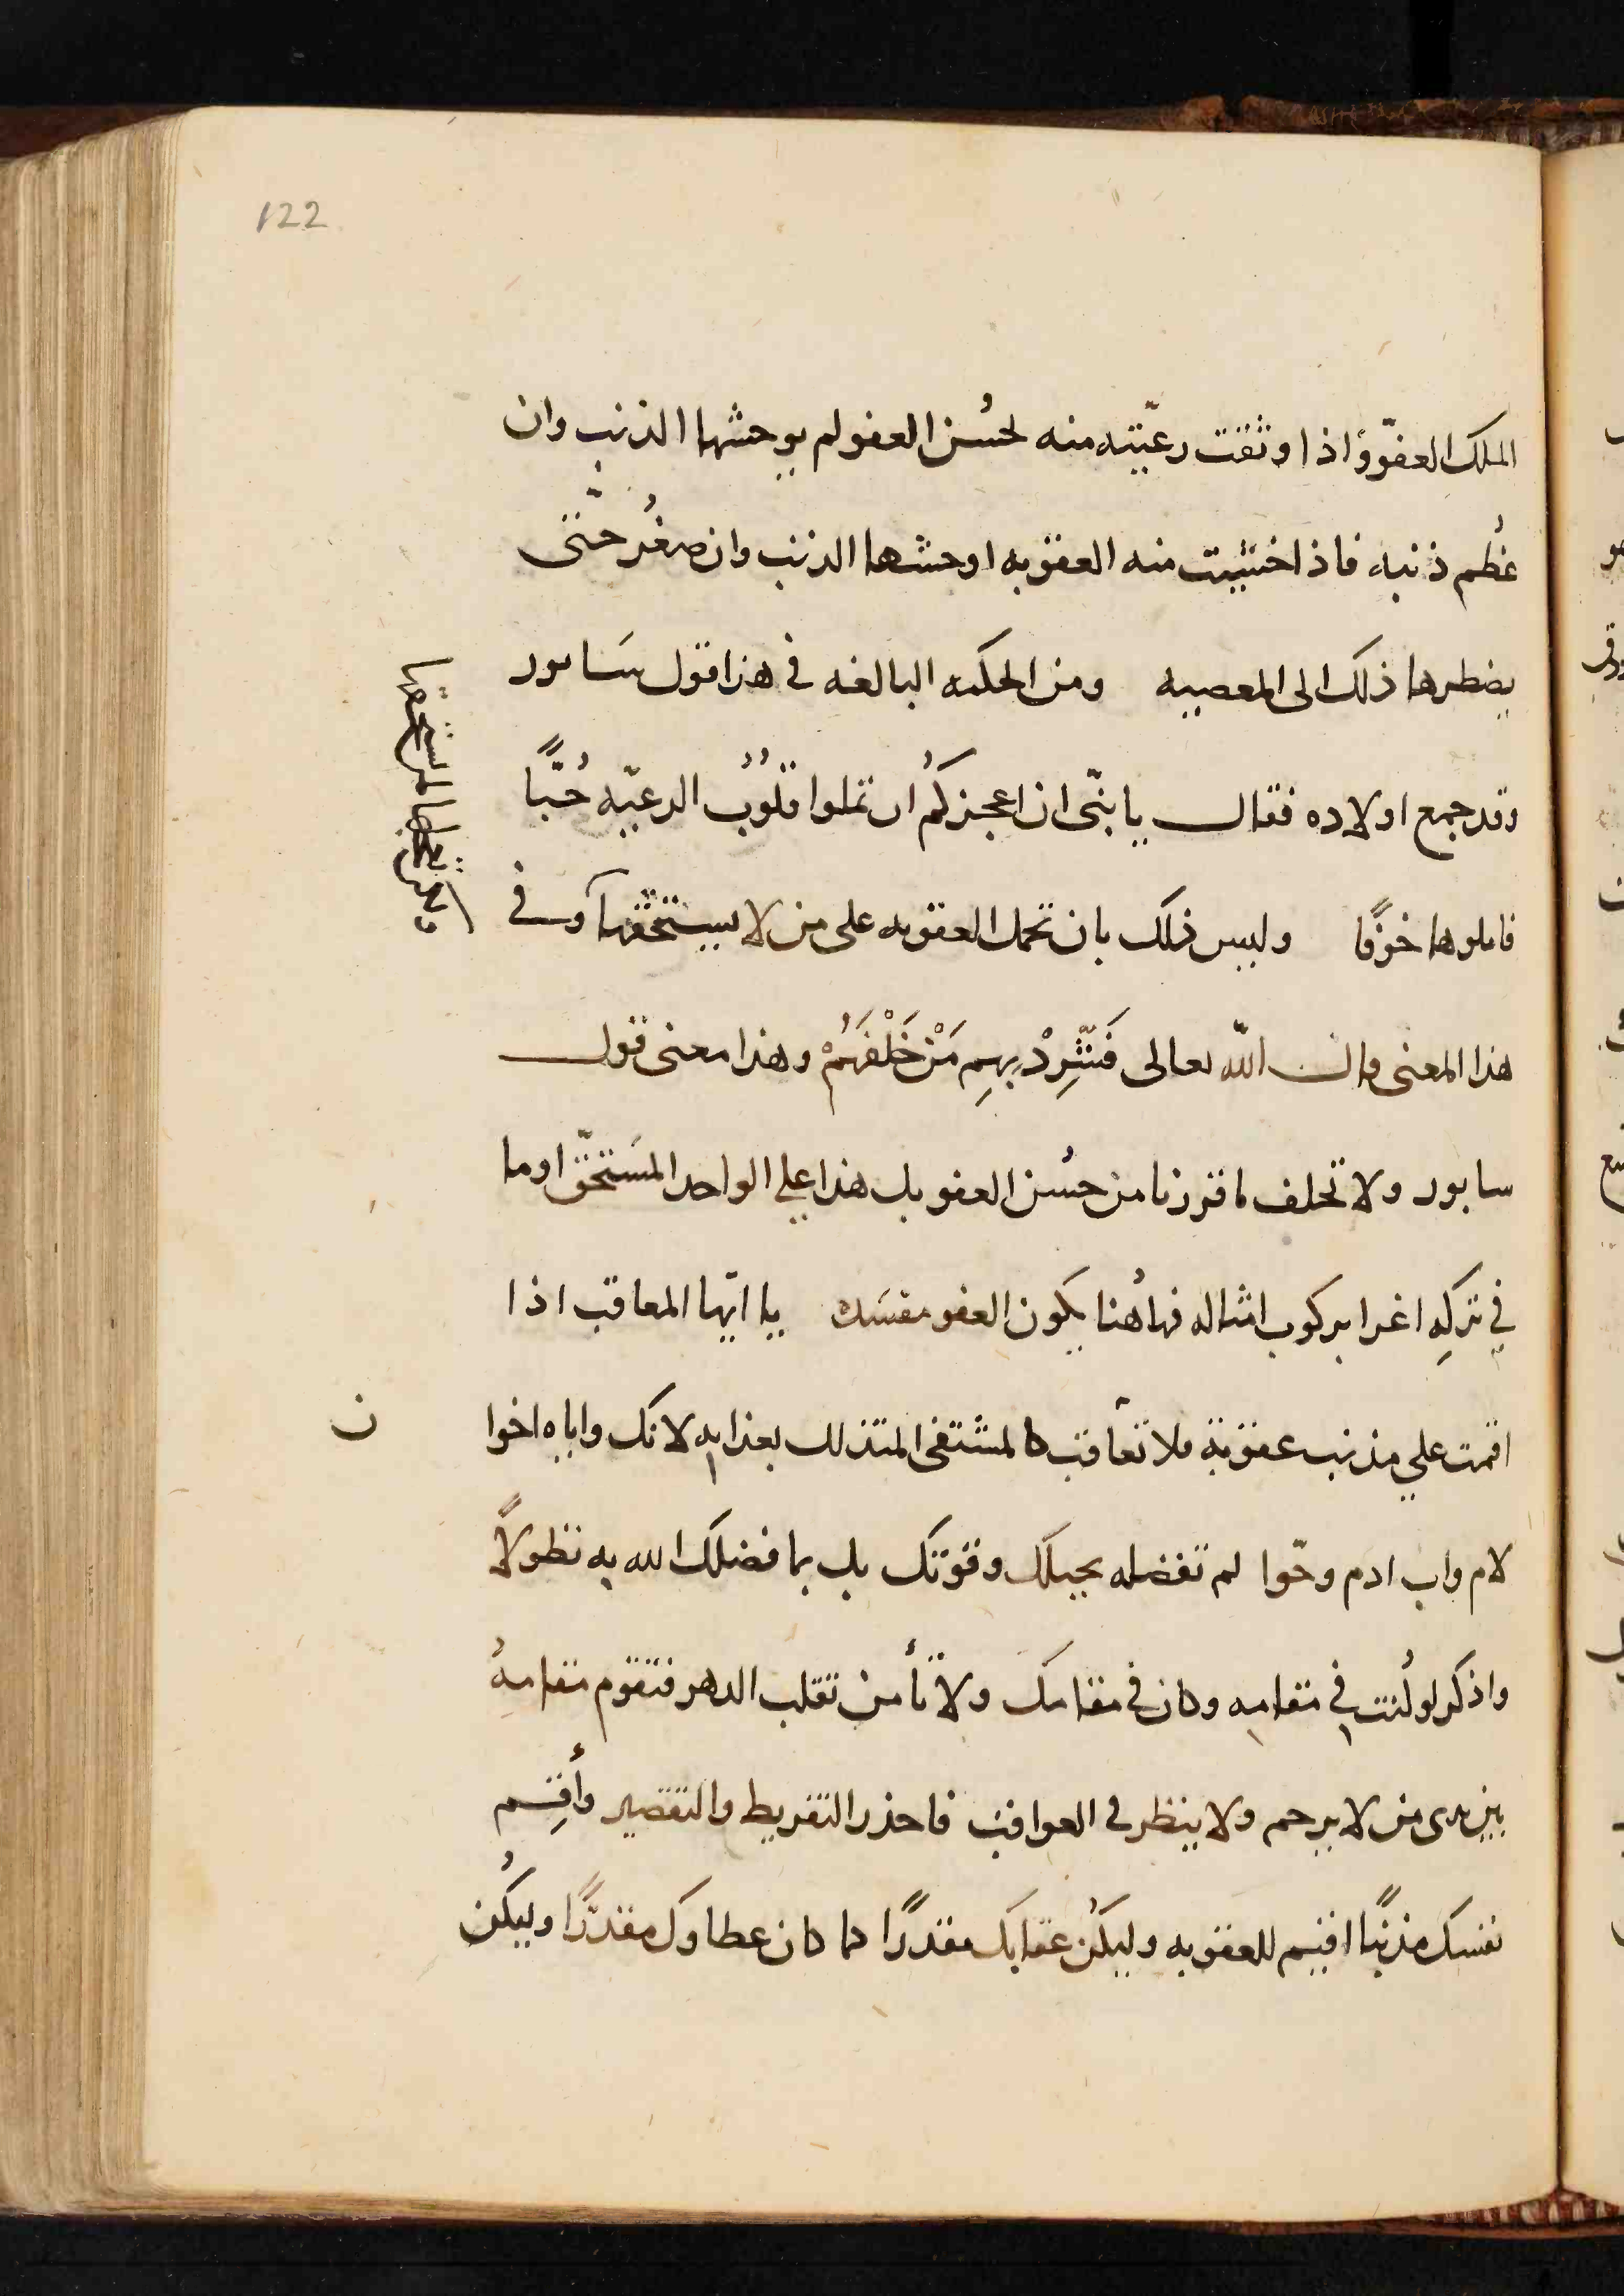 122
الملك العفوّ اذا وثقت رعيّته منه لحُسن العفو لم يوحشها الذنب وان
عظُم ذنبه فاذا خشيت منه العقوبه اوحشها الذنب وان صغُر حتّى
يضطرها ذلك الى المعصيه ومن الحكمه البالغه في هذا قول سَابور
وقد جمع اولاده فقال يا بنّى ان اعجزكُم ان تملوا قلُوبُ الرعيّه حُبًّا
فاملوها خوفًا وليس ذلك بان تحمل العقوبه على من لا يستحقها وفي
هذا المعنى قال اللّه تعالى فَشَرِّدْ بِهِم مَنْ خَلْفَهُمْ وهذا معنى قول
سابور ولا تخلف ما قررنا من حسُن العفو بل هذا على الواحد المسَتحقّ اوما
في تركِهِ اغرا بركوب امثاله فهاهُنا يكون العفو مفسَده يا ايّها المعاقب اذا
اقمت على مذنب عقوبة فلا تعاقب كالمشتفى المتذلل بعذابه لانك واياه اخوا
ن
لام واب ادم وحّوا لم تفضله بحيلك وقوتك بل بما فضلك الله به تطولاً
واذكر لو كُنت في مقامه وكان في مقامك ولا تأمن تقلب الدهر فتقوم مقامهُ
بين يدى من لا يرحم ولا ينظر في العواقب فاحذر التفريط والتقصير وأقِم
نفسك مذنبًا اقيم للعقوبه وليكُن عقابك مقدرًا كما كان عطاوك مقدرًّا وليكُن